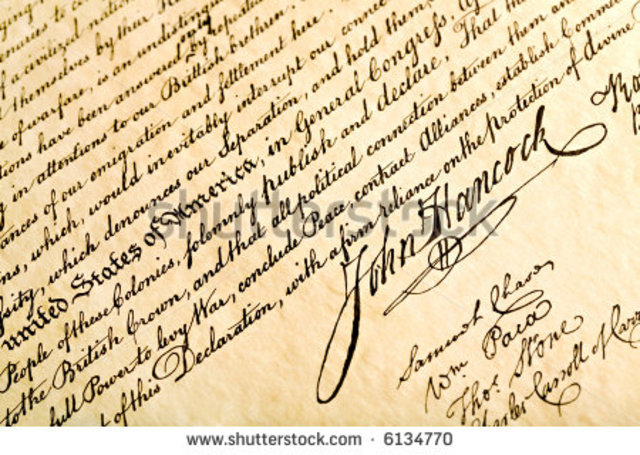 of a civilized nation
themselves by their
of warfare, is an undistinguis
tions have been answered by repeate
in attentions to our Brittish brethren.
ances of our emigration and settlement here.
ns, which, would inevitably interrupt our connec
sity, which denounces our Separation, and hold them
united States of America, in General Congress,
People of these Colonies, solemnly publish and declare, That
to the British Crown, and that all political connection between them an
full Power to levy War, conclude Peace, contract Alliances, establish Commer
of this Declaration, with a firm reliance on the protection of divine
John Hancock
Samuel Chase
Wm Paca
Thos Stone
Charles Carroll of Carr
shutterstock
www.shutterstock.com · 6134770